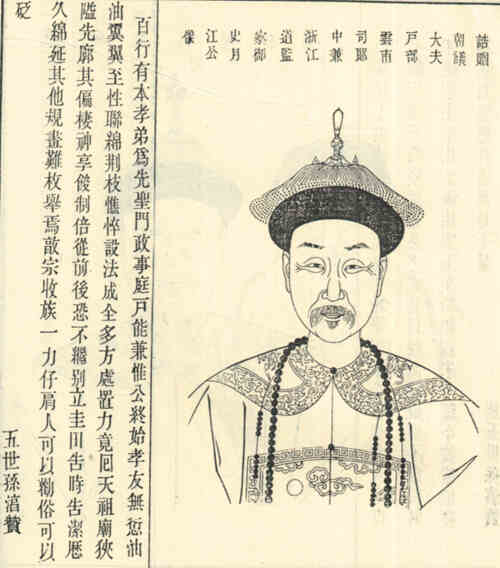 誥贈
朝議
大夫
戶部
雲南
司郎
中兼
浙江
道監
察御
史月
江公
像
百行有本孝弟爲先聖門政事庭戶能兼惟公終始孝友無愆油
油翼翼至性聯綿荊枝憔悴設法成全多方處置力竟囘天祖廟狹
隘先廓其偏棲神享餕制倍從前後恐不繼別立圭田吿時吿潔歷
久綿延其他規畫難枚舉焉敬宗收族一力仔肩人可以勸俗可以
砭
五世孫贊